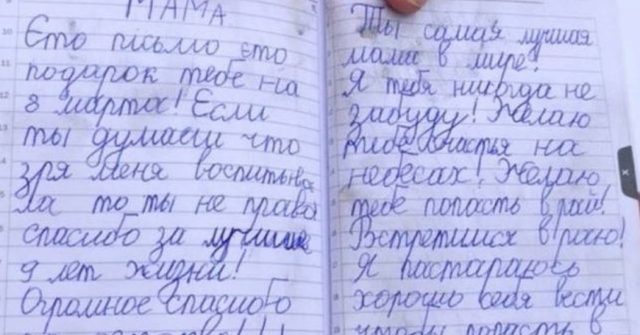 МАМА
Єто письмо єто
подарок тебе на
8 марта! Если
ты думаеш что
зря меня воспитыва
ла то ты не права
спасибо за лучшие
9 лет жизни!
Огромное спасибо
Ты самая лучшая
мама в мире?
Я тебя никогда не
забуду! Желаю
тебе счастья на
небесах! Желаю
тебе попасть в рай!
Встретимся в раю!
Я пастараюсь
хорошо себя вести
чтобы попасть в